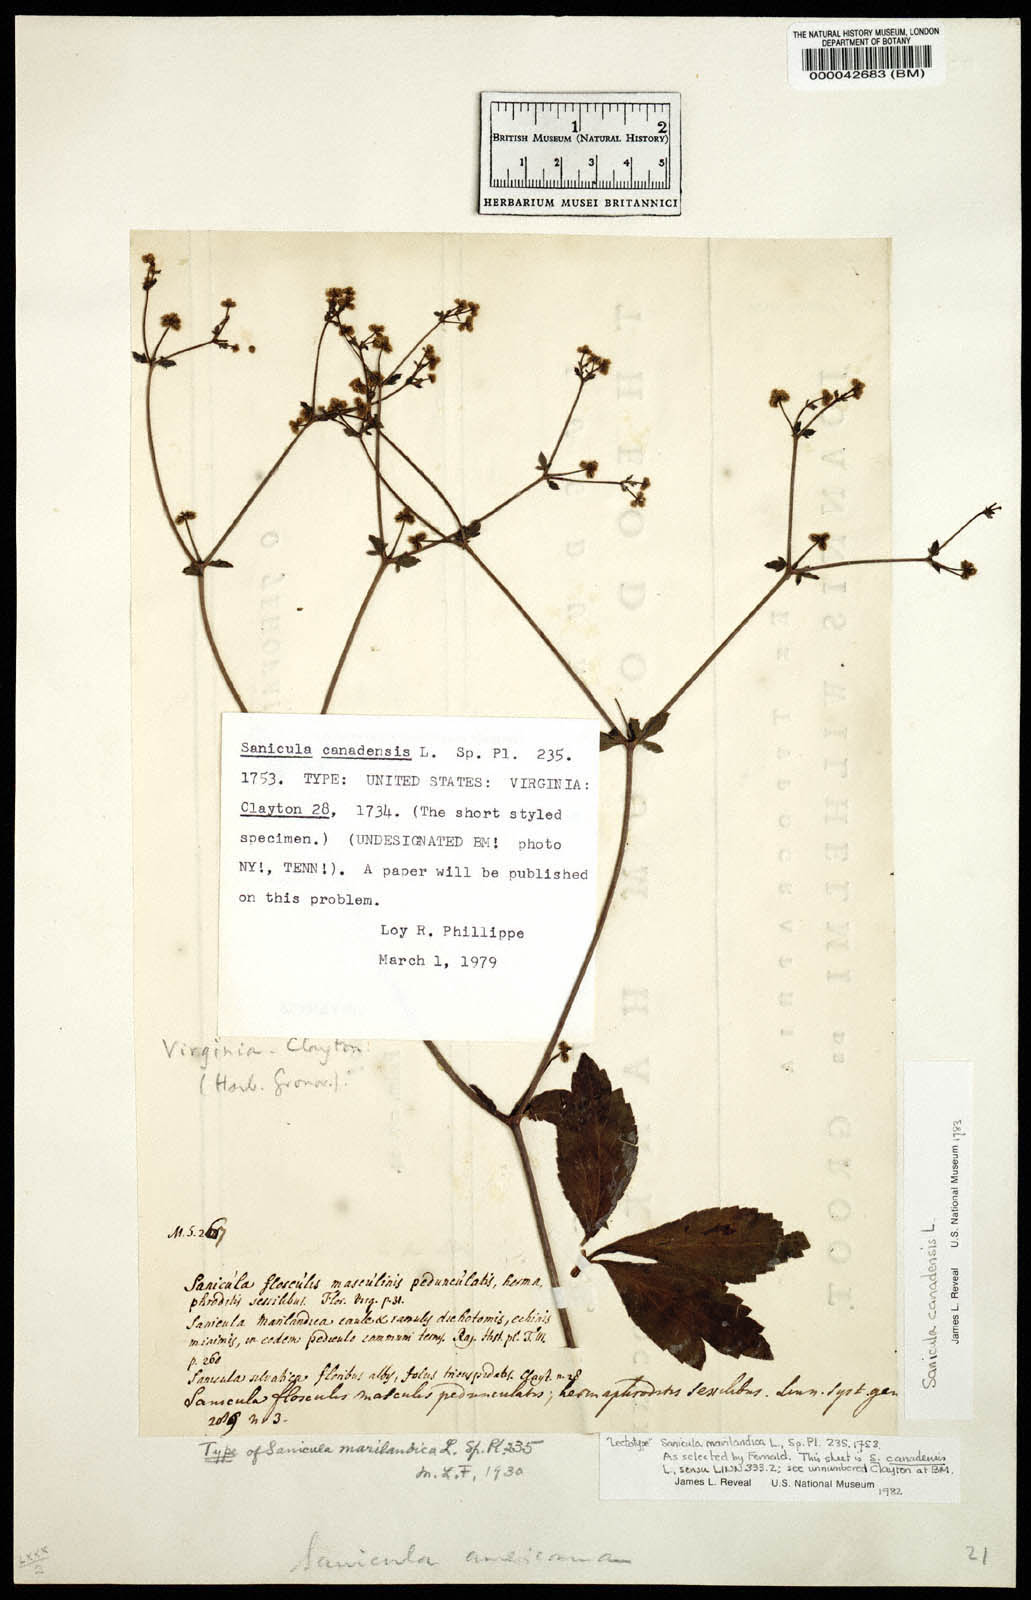 THE NATURAL HISTORY MUSEUM, LONDON
DEPARTMENT OF BOTANY
000042683 (BM)
1 2
BRITISH MUSEUM (NATURAL HISTORY)
1 2 3 4 5
HERBARIUM MUSEI BRITANNICI
Sanicula canadensis L. Sp. Pl. 235.
1753. TYPE: UNITED STATES: VIRGINIA:
Clayton 28, 1734. (The short styled
specimen.) (UNDESIGNATED BM! photo
NY!, TENN!). A paper will be published
on this problem.
Loy R. Phillippe
March 1, 1979
Virginia - Clayton.
(Herb. Gronov.).
M.S. 267
Sanicula flosculis masculinis pedunculatis, herma,
phroditis sessilibus. Flor. Virg. p. 31.
Sanicula Marilandica caule & ramulis dichotomis, echinis
minimis, in eodem pediculo communi ternis. Raj. Hist. pl. T. III.
p. 260
Sanicula silvatica floribus albis, foliis tricuspidatis. Clayt. n. 28
Sanicula flosculis masculis pedunculatis; hermaphroditis sessilibus. Linn. Syst. gen
n. 3.
Type of Sanicula marilandica L. Sp. Pl. 235
M. L. F., 1930
"Lectotype" Sanicula marilandica L., Sp. Pl. 235. 1753.
As selected by Fernald. This sheet is S. canadensis
L., sensu LINN 333.2; see unnumbered Clayton at BM.
James L. Reveal U.S. National Museum 1982
Sanicula canadensis L.
James L. Reveal U.S. National Museum 1983
Sanicula americana
LXXX
2
21